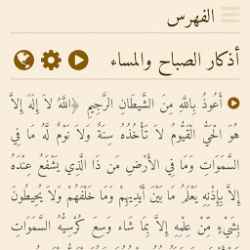 الفهرس
أذكار الصباح والمساء
أَعُوذُ بِاللَّهِ مِنَ الشَّيطَانِ الرَّجِيمِ ﴿اللَّهُ لاَ إِلَهَ إِلاَّ
هُوَ الْحَيُّ الْقَيُّومُ لاَ تَأْخُذُهُ سِنَةٌ وَلاَ نَوْمٌ لَّهُ مَا فِي
السَّمَوَاتِ وَمَا فِي الأَرْضِ مَن ذَا الَّذِي يَشْفَعُ عِنْدَهُ
إِلاَّ بِإِذْنِهِ يَعْلَمُ مَا بَيْنَ أَيْدِيهِمْ وَمَا خَلْفَهُمْ وَلاَ يُحِيطُونَ
بِشَيْءٍ مِّنْ عِلْمِهِ إِلاَّ بِمَا شَاء وَسِعَ كُرْسِيُّهُ السَّمَوَاتِ